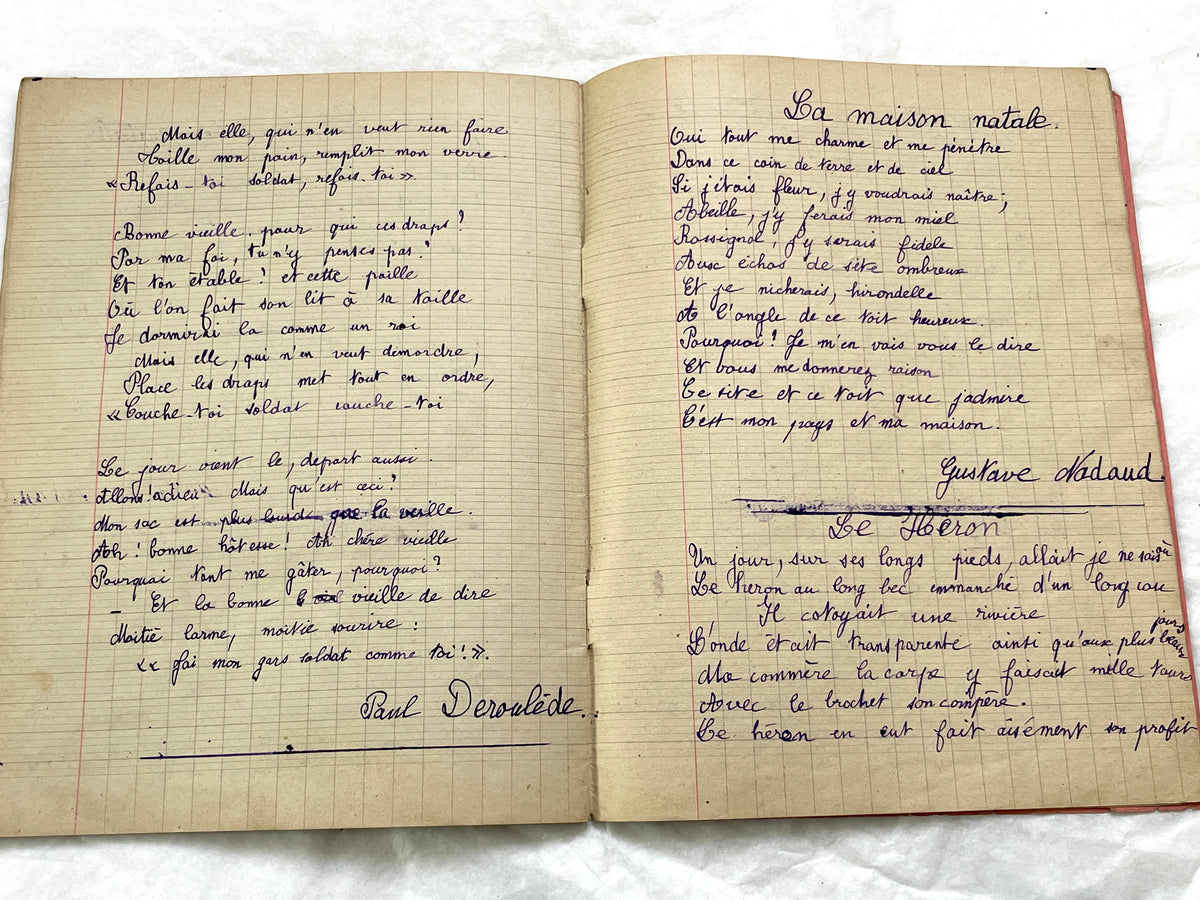 Mais elle, qui n'en veut rien faire
Taille mon pain, remplit mon verre.
«Refais-toi soldat, refais-toi».
Bonne vieille. pour qui ces draps?
Par ma foi, tu n'y penses pas?
Et ton étable! et cette paille
Où l'on fait son lit à sa taille
Je dormirai la comme un roi
Mais elle, qui n'en veut démordre,
Place les draps met tout en ordre,
«Couche-toi soldat couche-toi
Le jour vient le, depart aussi.
Allons! adieu Mais qu'est ceci?
Mon sac est plus lourd que la veille.
Ah! bonne hôtesse! Ah chère vieille
Pourquoi tant me gâter, pourquoi?
- Et la bonne vieille de dire
Moitié larme, moitié sourire:
«« J'ai mon gars soldat comme toi!».
Paul Deroulède.
La maison natale.
Oui tout me charme et me pénètre
Dans ce coin de terre et de ciel
Si j'étais fleur, j'y voudrais naître;
Abeille, j'y ferais mon miel
Rossignol, j'y serais fidèle
Aux échos de site ombreux
Et je nicherais, hirondelle
A l'angle de ce toit heureux.
Pourquoi? Je m'en vais vous le dire
Et vous me donnerez raison
Ce site et ce toit que j'admire
C'est mon pays et ma maison.
Gustave Nadaud.
Le Héron
Un jour, sur ses longs pieds, allait je ne sais où
Le heron au long bec emmanché d'un long cou
Il cotoyait une rivière
L'onde était transparente ainsi qu'aux plus beaux jours
Ma commère la carpe y faisait mille tours
Avec le brochet son compère.
Le héron en eut fait aisément son profit